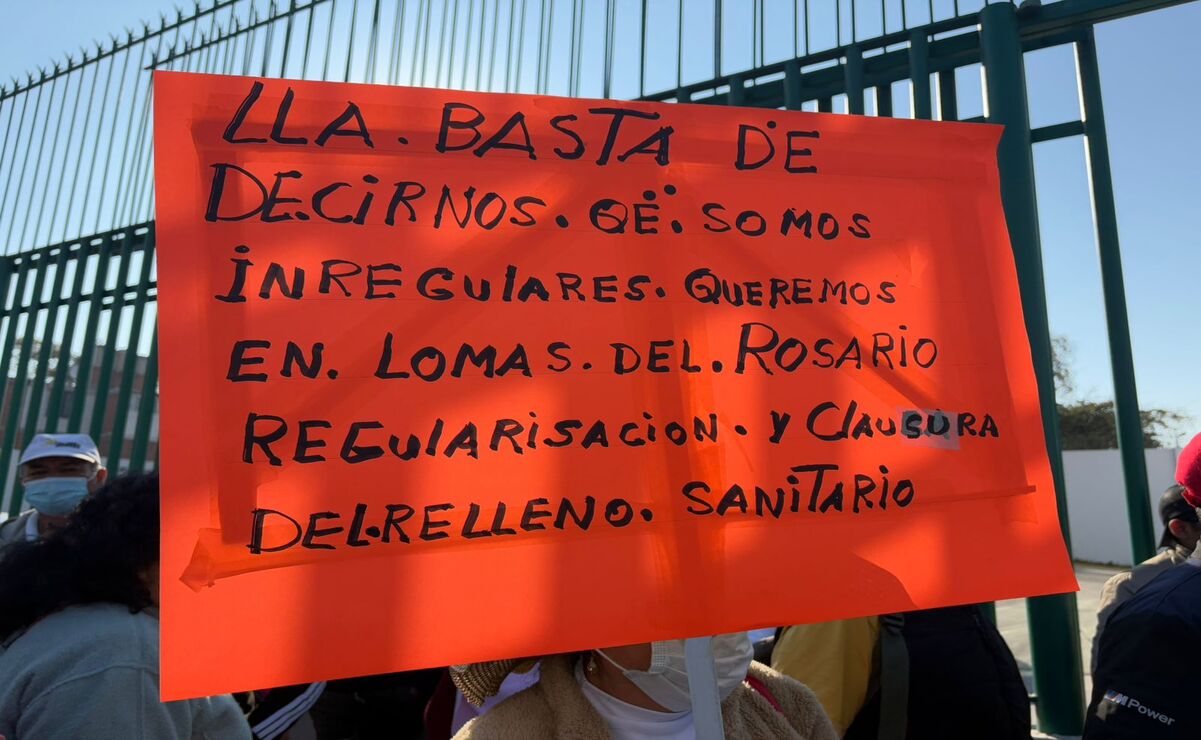 LLA. BASTA DE
DECIRNOS. QË. SOMOS
INREGULARES. QUEREMOS
EN. LOMAS. DEL. ROSARIO
REGULARISACION. Y CLAUSURA
DEL.RELLENO. SANITARIO
M Power